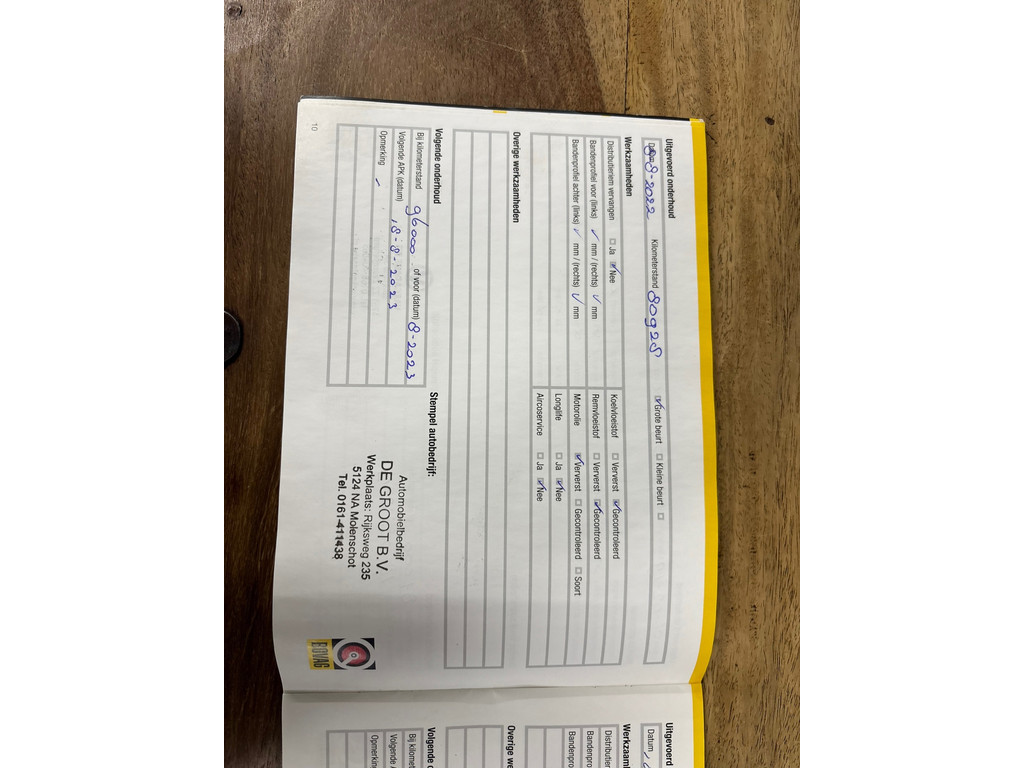 Uitgevoerd onderhoud
Datum 8-8-2022 Kilometerstand 80928 Grote beurt Kleine beurt
Werkzaamheden
Distributieriem vervangen Ja Nee Koelvloeistof Ververst Gecontroleerd
Bandenprofiel voor (links) mm / (rechts) mm Remvloeistof Ververst Gecontroleerd
Bandenprofiel achter (links) mm / (rechts) mm Motorolie Ververst Gecontroleerd Soort
Longlife Ja Nee
Aircoservice Ja Nee
Overige werkzaamheden
Volgende onderhoud
Bij kilometerstand 96000 of voor (datum) 8-2023
Volgende APK (datum) 18-8-2023
Opmerking
Stempel autobedrijf:
Automobielbedrijf
DE GROOT B.V.
Werkplaats: Rijksweg 235
5124 NA Molenschot
Tel. 0161-411438
BOVAG
10
Uitgevoerd
Datum
Werkzaam
Distributieri
Bandenpro
Bandenpro
Overige we
Volgende o
Bij kilomet
Volgende A
Opmerking